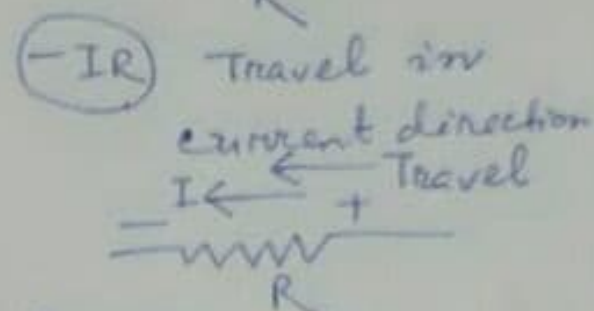 -IR Travel in
current direction
Travel
I +
-
R